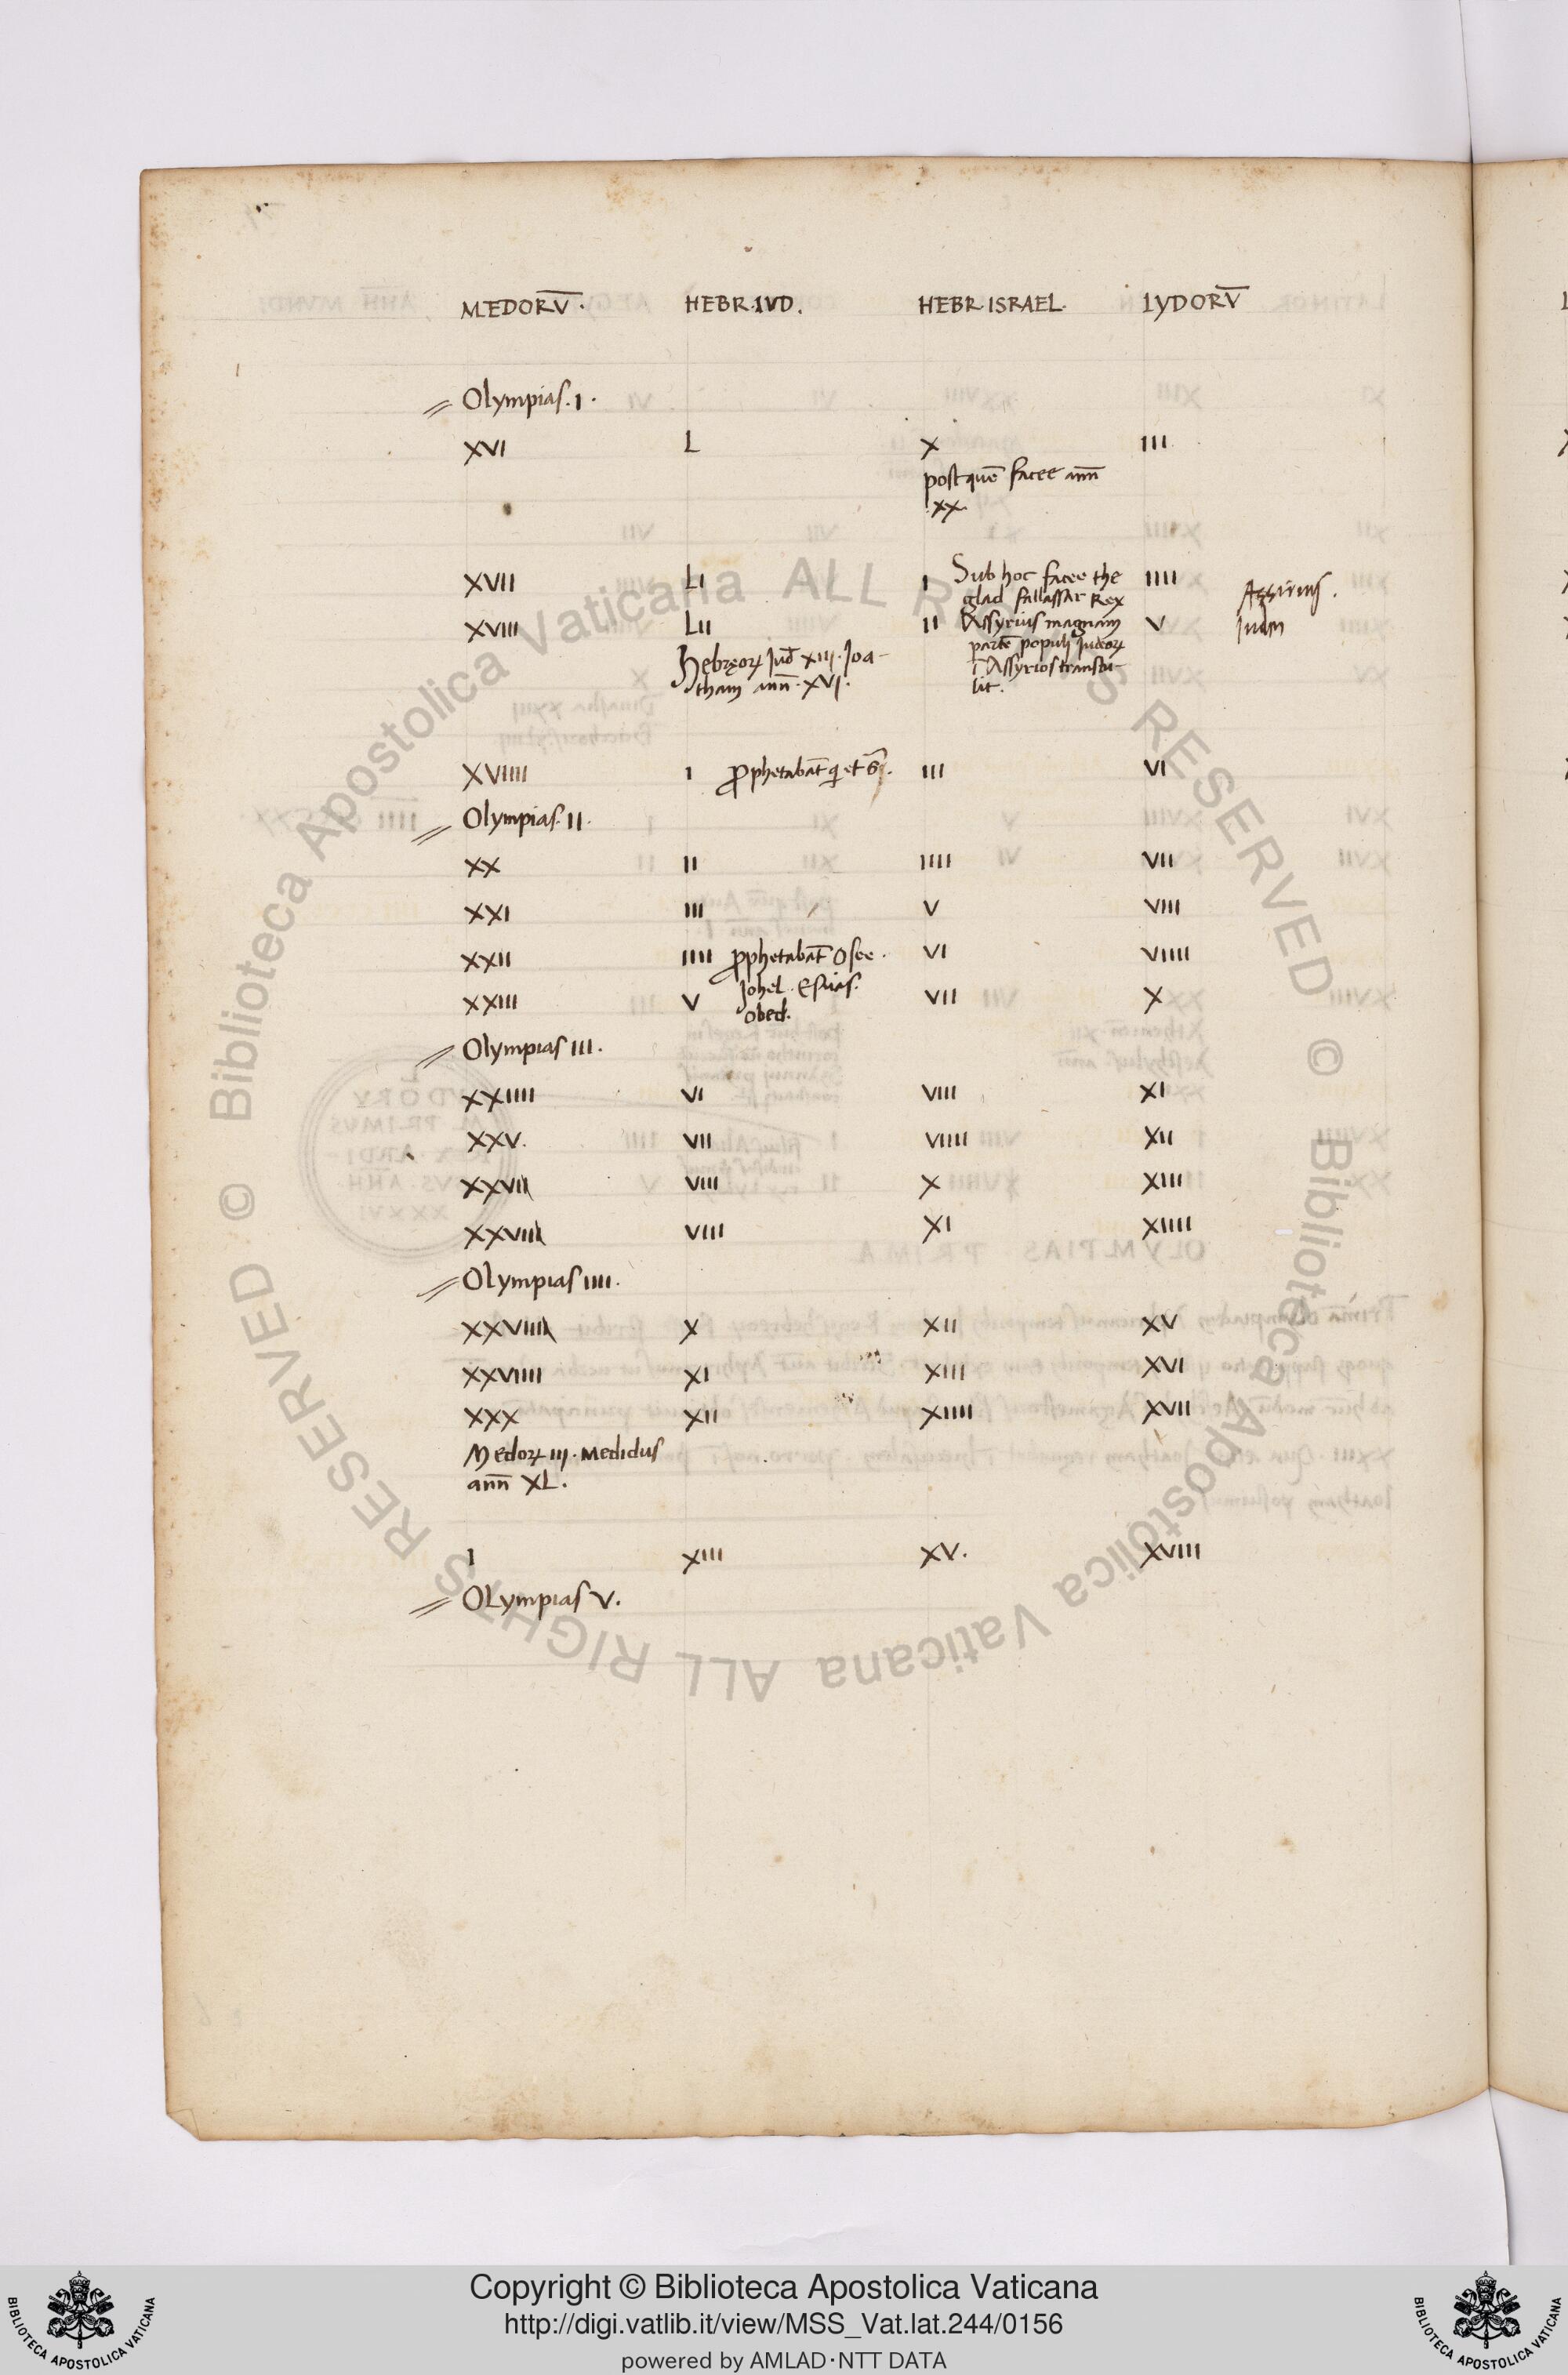 MEDORV̅. HEBR.IVD. HEBR.ISRAEL. LYDORV̅
Olympias. I.
XVI L X III
postquē facee ann̄
.XX.
XVII LI I Sub hoc facee the IIII
glad fallassar Rex Assirius.
XVIII LII II Assyrius magnam V
partē populi Iudeoꝝ
Hebręoꝝ Iud̄ XIII. Ioa-
ī Assyrios transtu-
tham ann̄. XVI. lit.
XVIIII I ꝓphetabāt III VI
Olympias. II.
XX II IIII VII
XXI III V VIII
XXII IIII ꝓphetabāt Osee. VI VIIII
XXIII V Johel. Esaias. VII X
Obed.
Olympias III.
XXIIII VI VIII XI
XXV. VII VIIII XII
XXVII VIII X XIII
XXVIII VIIII XI XIIII
Olympias IIII.
XXVIIII X XII XV
XXVIIII XI XIII XVI
XXX XII XIIII XVII
Medoꝝ III. Medidus
ann̄ XL.
I XIII XV. XVIII
Olympias V.
© Biblioteca Apostolica Vaticana ALL RIGHTS RESERVED
© Biblioteca Apostolica Vaticana ALL RIGHTS RESERVED
Copyright © Biblioteca Apostolica Vaticana
http://digi.vatlib.it/view/MSS_Vat.lat.244/0156
powered by AMLAD·NTT DATA
BIBLIOTECA APOSTOLICA VATICANA
BIBLIOTECA APOSTOLICA VATICANA